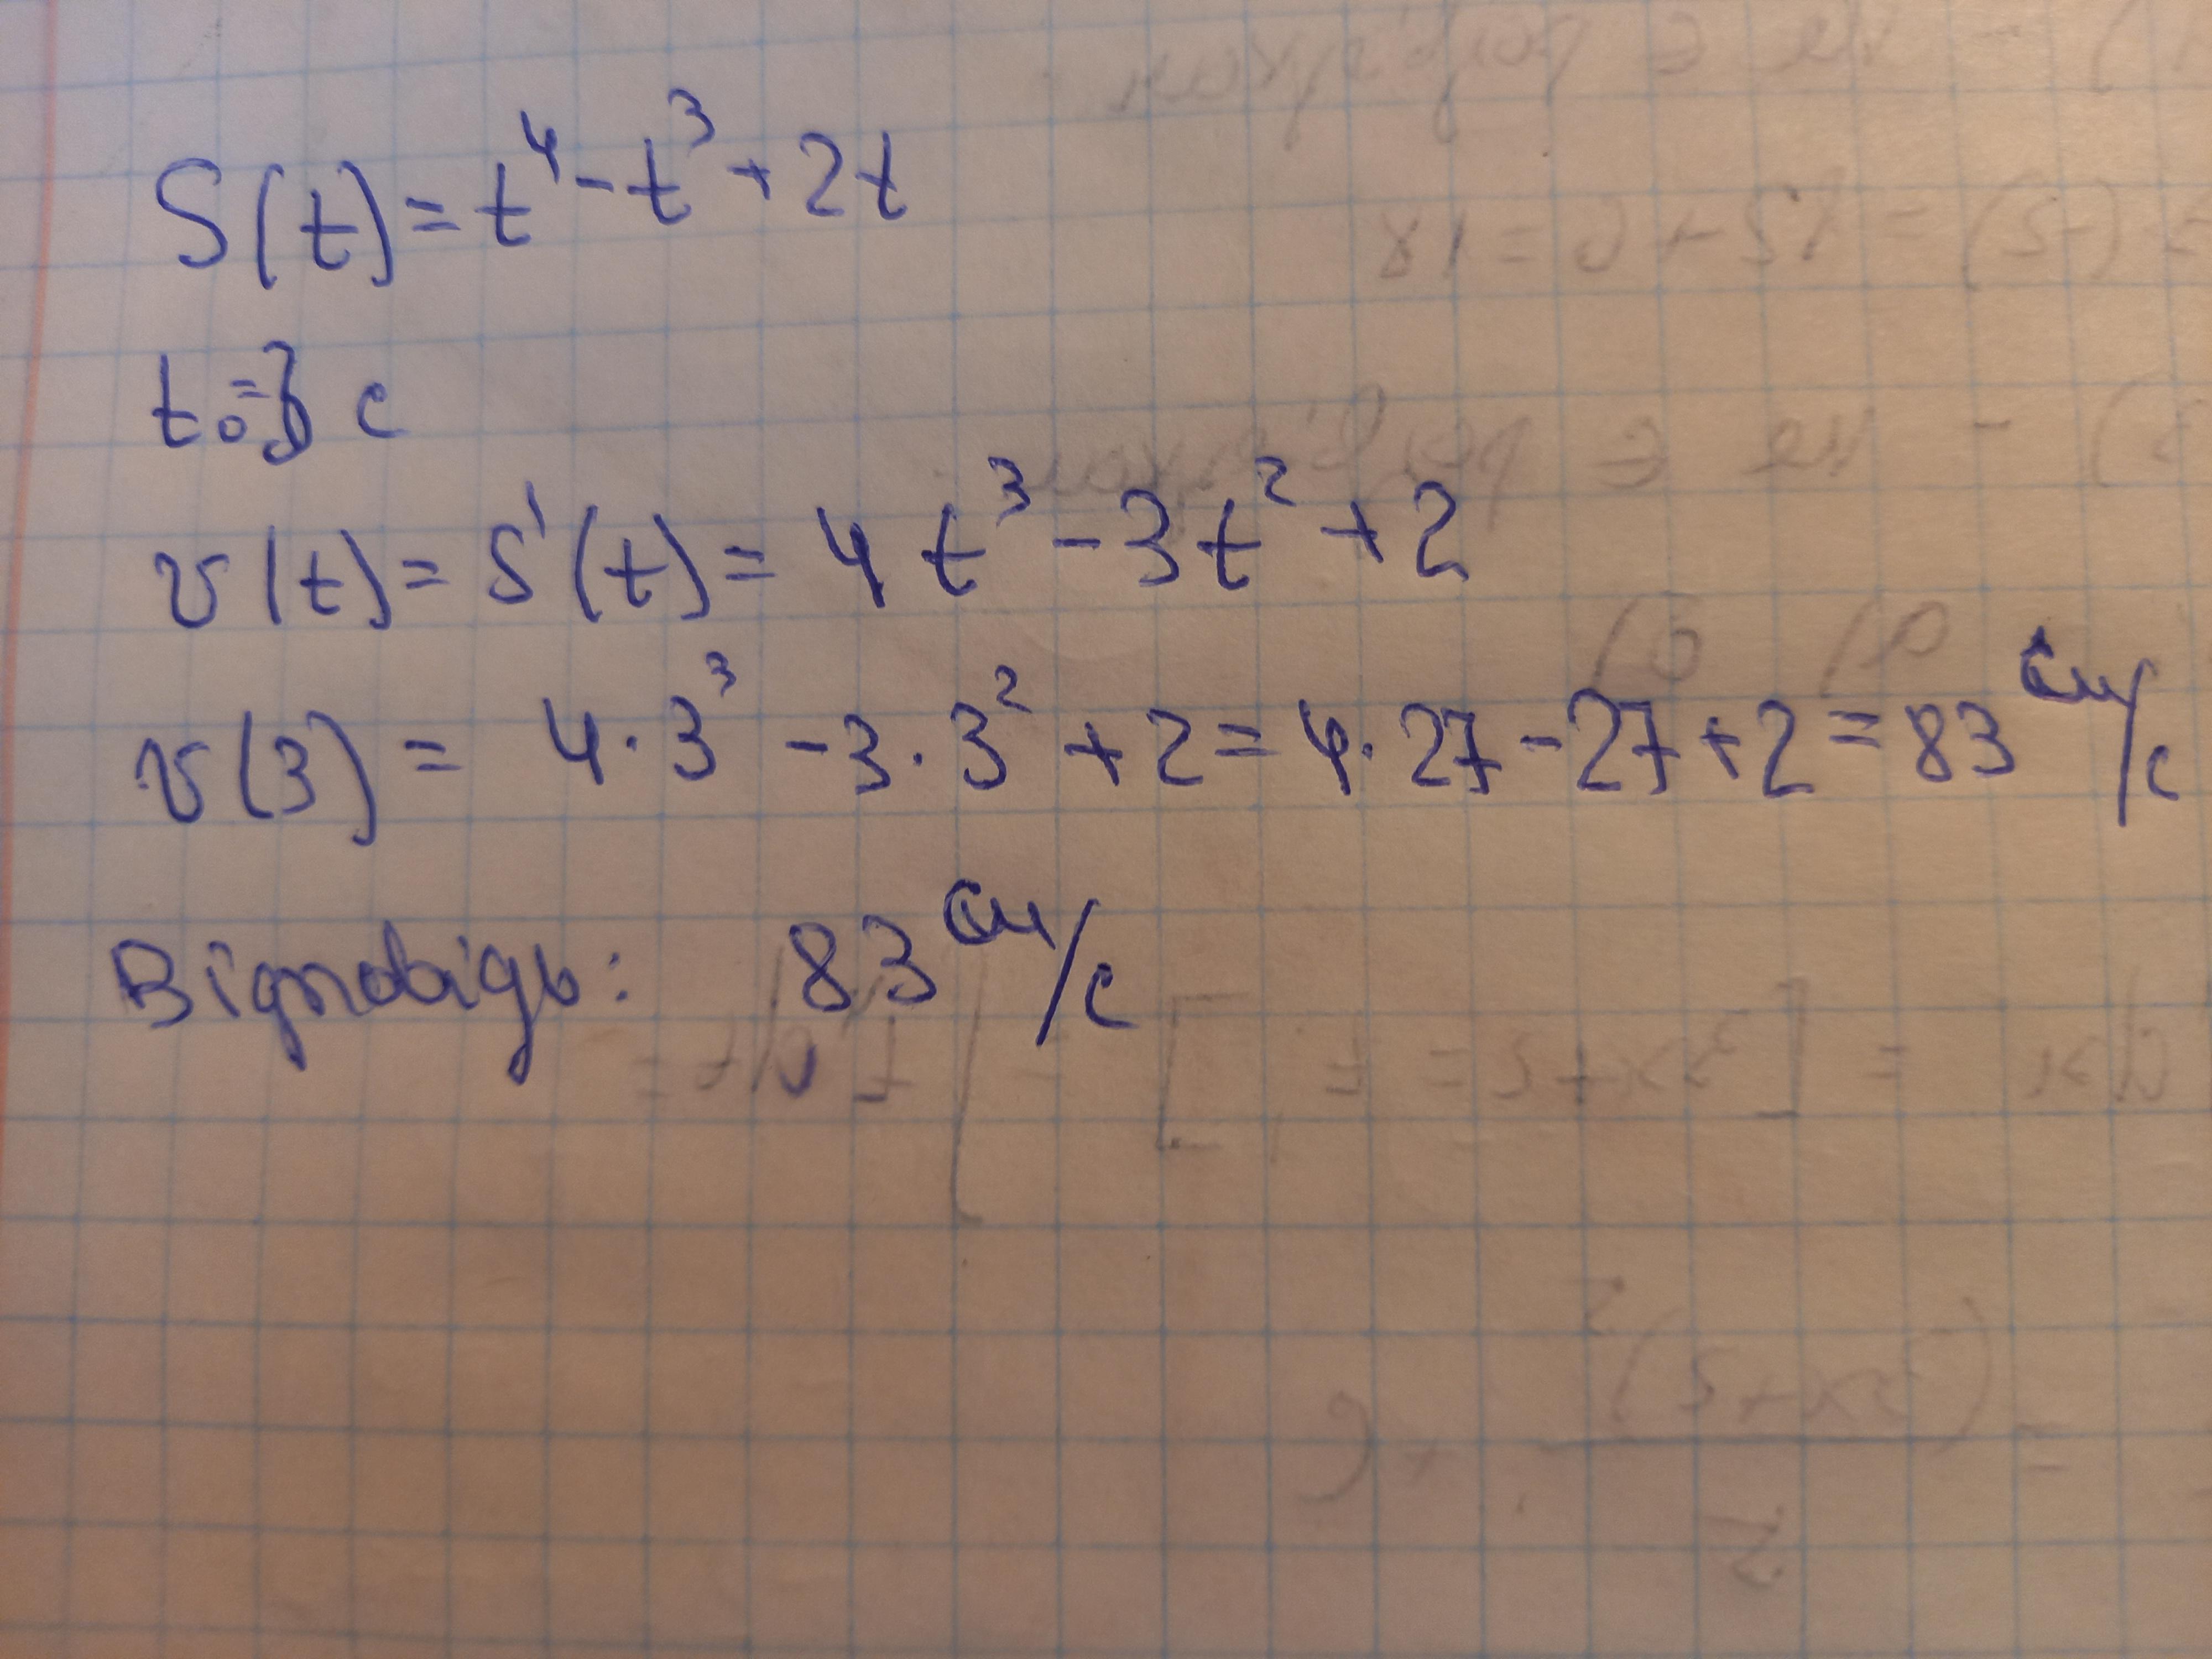 S(t) = t⁴ - t³ + 2t
t₀ = 3 c
v(t) = S'(t) = 4t³ - 3t² + 2
v(3) = 4 · 3³ - 3 · 3² + 2 = 4 · 27 - 27 + 2 = 83 см/с
Відповідь: 83 см/с